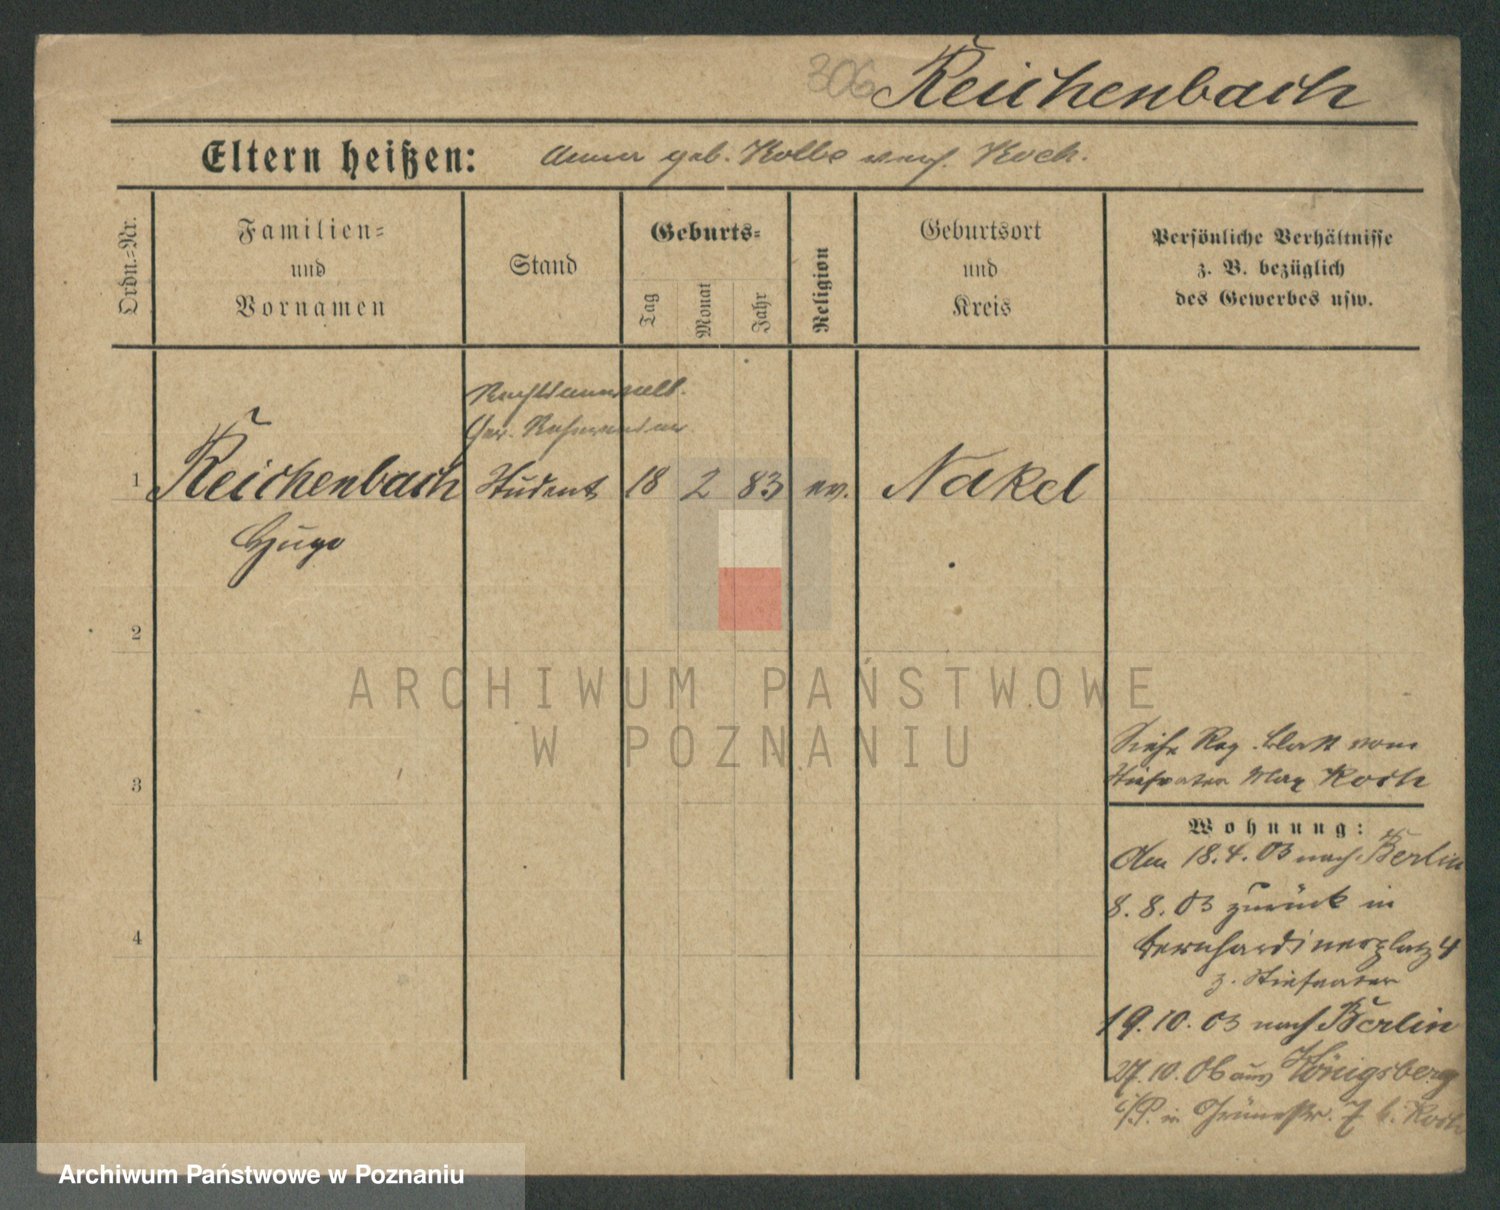 306 Reichenbach
Eltern heißen: Anna geb. Kolbe verh. Koch.
Ordn.-Nr.
Familien-
und
Vornamen
Stand
Geburts-
Tag
Monat
Jahr
Religion
Geburtsort
und
Kreis
Persönliche Verhältnisse
z. B. bezüglich
des Gewerbes usw.
Rechtsanwalt.
Ger. Referendar
1 Reichenbach Student 18 2 83 ev. Nakel
Hugo
2
ARCHIWUM PAŃSTWOWE
W POZNANIU
Siehe Reg. blatt vom
3 Stiefvater Max Koch
Wohnung:
Am 18.4.03 nach Berlin
8.8.03 zurück in
4 Bernhardinerplatz 4
z. Stiefvater
19.10.03 nach Berlin
27.10.06 aus Königsberg
i/P. in 7 b. Koch
Archiwum Państwowe w Poznaniu